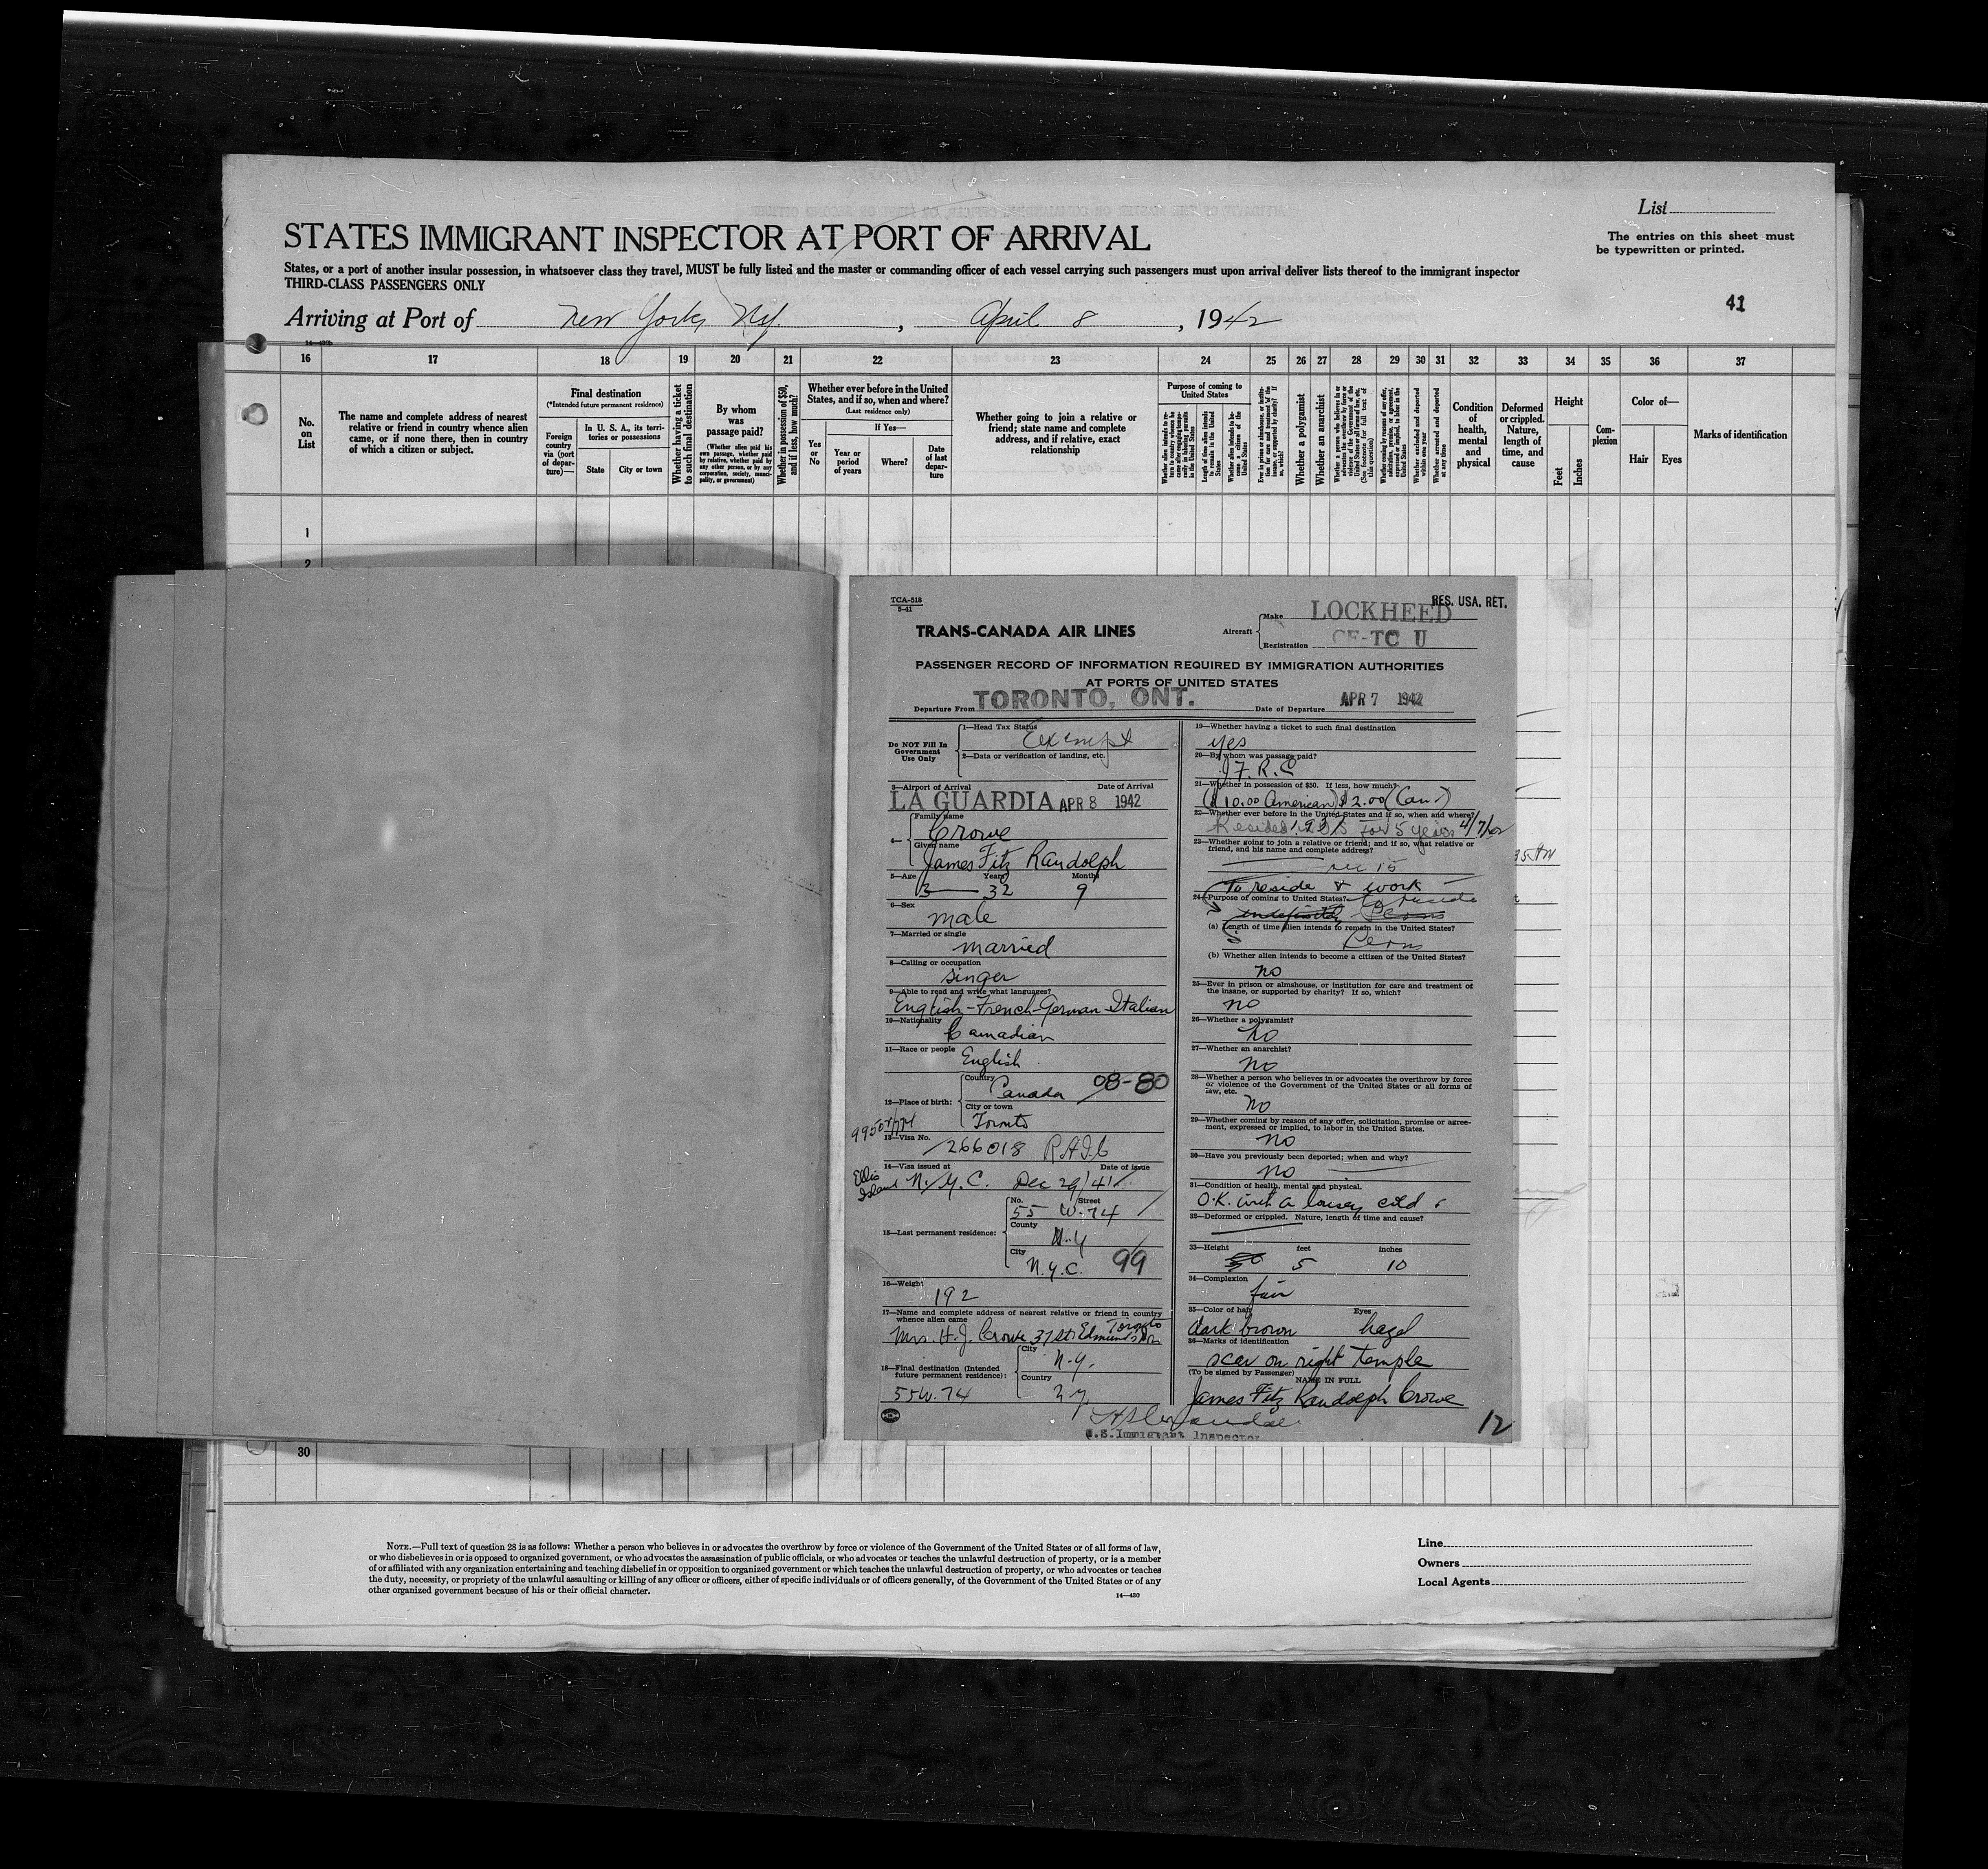 List
The entries on this sheet must
be typewritten or printed.
STATES IMMIGRANT INSPECTOR AT PORT OF ARRIVAL
States, or a port of another insular possession, in whatsoever class they travel, MUST be fully listed and the master or commanding officer of each vessel carrying such passengers must upon arrival deliver lists thereof to the immigrant inspector
THIRD-CLASS PASSENGERS ONLY
41
Arriving at Port of New York, NY. , April 8 , 1942
16 17 18 19 20 21 22 23 24 25 26 27 28 29 30 31 32 33 34 35 36 37
No. on List
The name and complete address of nearest relative or friend in country whence alien came, or if none there, then in country of which a citizen or subject.
Final destination
(*Intended future permanent residence)
Foreign country via (port of departure)—
In U. S. A., its territories or possessions
State
City or town
Whether having a ticket to such final destination
By whom was passage paid?
(Whether alien paid his own passage, whether paid by relative, whether paid by any other person, or by any corporation, society, municipality, or government)
Whether in possession of $50, and if less, how much?
Whether ever before in the United States, and if so, when and where?
(Last residence only)
Yes or No
If Yes—
Year or period of years
Where?
Date of last departure
Whether going to join a relative or friend; state name and complete address, and if relative, exact relationship
Purpose of coming to United States
Whether a polygamist
Whether an anarchist
Condition of health, mental and physical
Deformed or crippled. Nature, length of time, and cause
Height
Feet
Inches
Complexion
Color of—
Hair
Eyes
Marks of identification
1
2
TCA-518
5-41
RES. USA. RET.
TRANS-CANADA AIR LINES
Aircraft
Make LOCKHEED
Registration CF-TC U
PASSENGER RECORD OF INFORMATION REQUIRED BY IMMIGRATION AUTHORITIES
AT PORTS OF UNITED STATES
Departure From TORONTO, ONT. Date of Departure APR 7 1942
Do NOT Fill In Government Use Only
1—Head Tax Status
exempt
2—Data or verification of landing, etc.
3—Airport of Arrival Date of Arrival
LA GUARDIA APR 8 1942
4—
Family name
Crowe
Given name
James Fitz Randolph
5—Age Years Months
32 9
6—Sex
male
7—Married or single
married
8—Calling or occupation
singer
9—Able to read and write what languages?
English-French-German-Italian
10—Nationality
Canadian
11—Race or people
English
12—Place of birth:
Country
Canada 08-80
City or town
Toronto
13—Visa No.
266018
14—Visa issued at Date of issue
Ellis Island N.Y.C. Dec 29/41
15—Last permanent residence:
No. Street
55 W. 74
County
N.Y
City
N.Y.C. 99
16—Weight
192
17—Name and complete address of nearest relative or friend in country
whence alien came
Mrs. H.J. Crowe 37 St. Edmunds Dr Toronto
18—Final destination (Intended future permanent residence):
City
N.Y.
Country
55 W. 74
19—Whether having a ticket to such final destination
yes
20—By whom was passage paid?
J.F.R.C
21—Whether in possession of $50. If less, how much?
($10.00 American) $2.00 (Can.)
22—Whether ever before in the United States and if so, when and where?
Resided for 5 years 4/7/42
23—Whether going to join a relative or friend; and if so, what relative or
friend, and his name and complete address?
see 15
To reside & work
24—Purpose of coming to United States?
to reside
indefinitely Perm
(a) Length of time alien intends to remain in the United States?
Perm
(b) Whether alien intends to become a citizen of the United States?
no
25—Ever in prison or almshouse, or institution for care and treatment of
the insane, or supported by charity? If so, which?
no
26—Whether a polygamist?
no
27—Whether an anarchist?
no
28—Whether a person who believes in or advocates the overthrow by force
or violence of the Government of the United States or all forms of
law, etc.
no
29—Whether coming by reason of any offer, solicitation, promise or agreement, expressed or implied, to labor in the United States.
no
30—Have you previously been deported; when and why?
no
31—Condition of health, mental and physical.
O.K. with a lousey cold
32—Deformed or crippled. Nature, length of time and cause?
33—Height feet inches
5 10
34—Complexion
fair
35—Color of hair Eyes
dark brown hazel
36—Marks of identification
scar on right temple
(To be signed by Passenger) NAME IN FULL
James Fitz Randolph Crowe
U.S. Immigrant Inspector
12
30
NOTE.—Full text of question 28 is as follows: Whether a person who believes in or advocates the overthrow by force or violence of the Government of the United States or of all forms of law,
or who disbelieves in or is opposed to organized government, or who advocates the assassination of public officials, or who advocates or teaches the unlawful destruction of property, or is a member
of or affiliated with any organization entertaining and teaching disbelief in or opposition to organized government or which teaches the unlawful destruction of property, or who advocates or teaches
the duty, necessity, or propriety of the unlawful assaulting or killing of any officer or officers, either of specific individuals or of officers generally, of the Government of the United States or of any
other organized government because of his or their official character.
14—430
Line
Owners
Local Agents